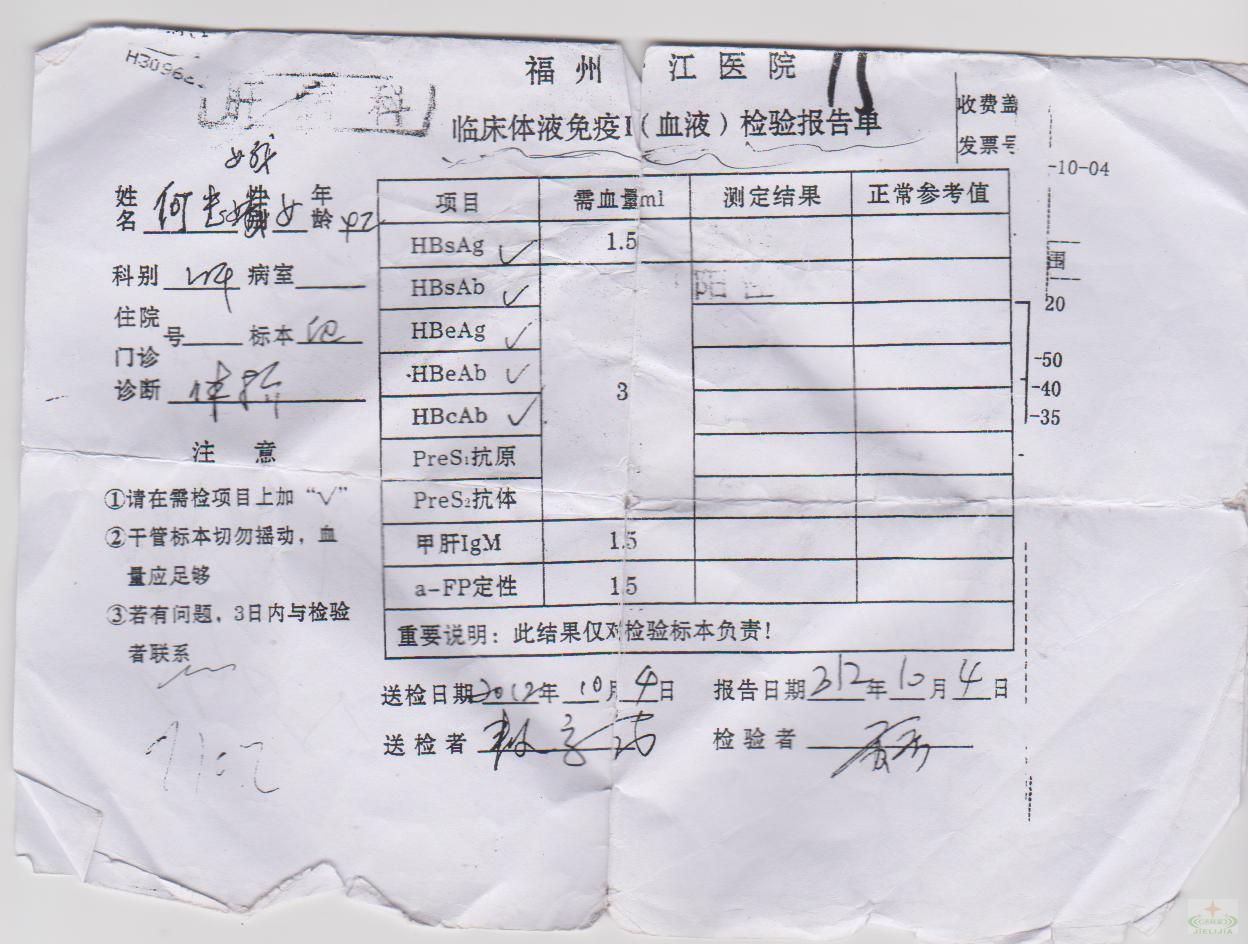 H3096
福州 江医院
临床体液免疫I(血液)检验报告单
收费盖
发票号
-10-04
姓名 何 女 年龄 42
科别 病室
住院号 标本
门诊
诊断 体检
注 意
①请在需检项目上加“√”
②干管标本切勿摇动,血
量应足够
③若有问题,3日内与检验
者联系
项目 需血量ml 测定结果 正常参考值
HBsAg ✓ 1.5
HBsAb ✓ 阳性
HBeAg ✓
HBeAb ✓ 3
HBcAb ✓
PreS₁抗原
PreS₂抗体
甲肝IgM 1.5
a-FP定性 1.5
重要说明:此结果仅对检验标本负责!
围
20
-50
-40
-35
送检日期 2012年 10月 4日 报告日期 312年 10月 4日
送检者 检验者
JIELIJIA